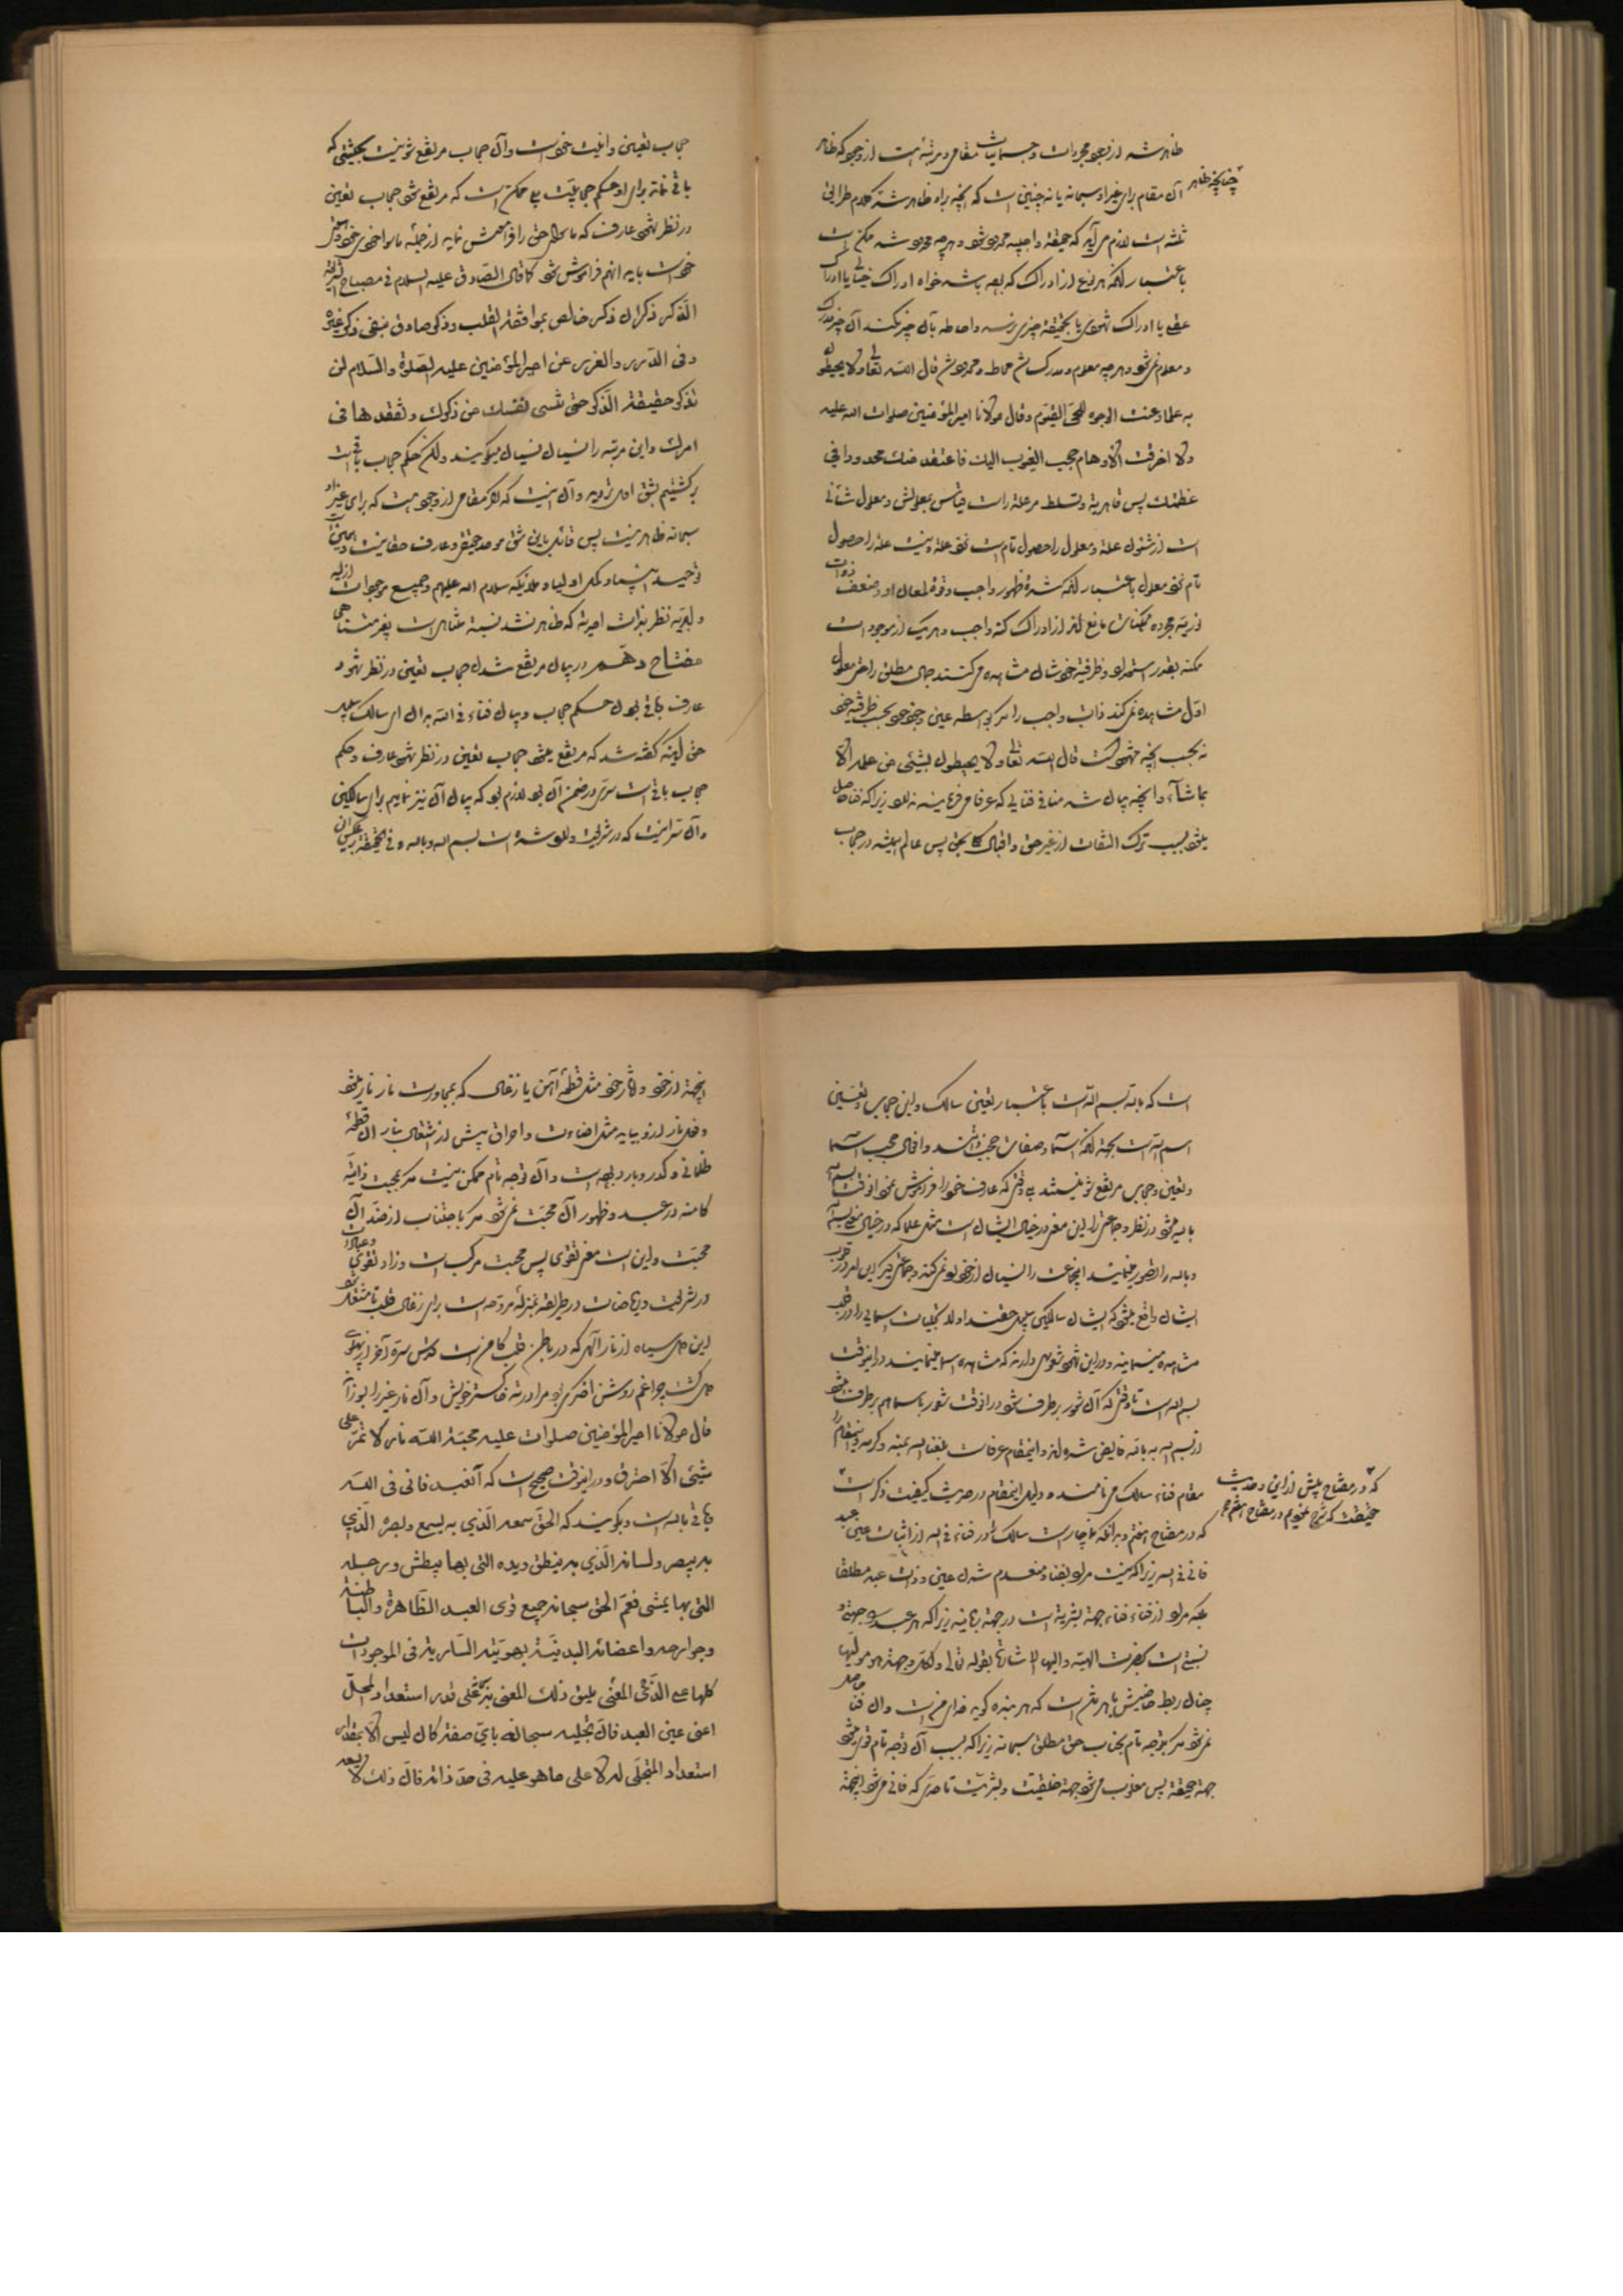 ظاهر شده از وجود مجردات و جسمانیات مقامی و مرتبه است از وجود که ظاهر
چنانچه ظاهر
آن مقام برای غیر او سبحانه یا نه چنین است که آنچه براو ظاهر شده کلام
ثلثه است لازم می‌آید که حقیقة واجبیه محدود شود و هر چه محدود شد ممکن است
باعتبار آنکه هر نوع از ادراک که بوده باشد خواه ادراک خیالی یا ادراک
عقلی یا ادراک شهودی تا بحقیقة چیزی نرسد و احاطه بآن چیز نکند آن چیز مدرک
و معلوم نمی‌شود و هر چه معلوم و مدرک شد محاط و محدود شد قال الله تعالی ولا یحیطون
به علما وعنت الوجوه للحی القیوم وقال مولانا امیر المؤمنین صلوات الله علیه
ولا اخرقت الاوهام حجب الغیوب الیک فاعتقد منک محدودا فی
عظمتک پس قاهریة و تسلط مر علة راست قیاس بمعلولش و معلول شأنی
است از شئون علة و معلول را حصول تام است نزد علة و نیست علة را حصول
تام نزد معلول باعتبار آنکه شدة ظهور واجب و قوة لمعان او و ضعف ذوات
مجرده ممکنات مانع اند از ادراک کنه واجب و هر یک از موجودات
ممکنه بقدر استعداد و ظرفیة خودشان مشاهده می‌کنند جمال مطلق را حتی معلول
اول مشاهده نمی‌کند ذات واجب را مگر بواسطه عین وجود خود بحسب ظرفیة خود
نه بحسب آنچه مشهود است قال الله تعالی ولا یحیطون بشیئی من علمه الا
بما شاء و آنچه بیان شد منافی فنائی که عرفا می‌فرمایند ندارد زیرا که فنا حاصل
میشود بسبب ترک التفات از غیر حق و اقبال کلی بحق پس عالم همیشه در حجاب
حجاب تعین و انیت خود است و آن حجاب مرتفع شدنی نیست بحیثیتی که
باقی نماند برای او حکم حجابیت بلی ممکن است که مرتفع شود حجاب تعین
در نظر شهود عارف که ماسوای حق را فراموش نماید از جمله ماسوا خودی خود
خود است باید انهم فراموش شود کما قال الصادق علیه السلام فی مصباح الشریعة
الذکر ذکران ذکر خالص بموافقة القلب وذکر صادق ینفی ذکر غیره
وفی الدرر والغرر عن امیر المؤمنین علیه الصلوة والسلام لن
تذکر حقیقة الذکر حتی تنسی نفسک من ذکرک وتفقدها فی
امرک و این مرتبه را نسیان نسیان میگویند ولکن حکم حجاب باقی است
برگشتیم بشق اول تردید و آن اینست که اگر مقامی از وجود هست که برای غیر او
سبحانه ظاهر نیست پس قائل باین شق موحد حقیقی و عارف حقانیست و همین است
توحید انبیا و کمل اولیا و ملائکه سلام الله علیهم و جمیع موجودات ازلیه
و ابدیه نظر بذات احدیة که ظاهر نشد نسبة متناهی است بغیر متناهی
مفتاح دهم در بیان مرتفع شدن حجاب تعین در نظر شهود
عارف و باقی بودن حکم حجاب و بیان فناء فی الله بدان ای سالک
حق اینکه گفته شد که مرتفع میشود حجاب تعین در نظر شهود عارف و حکم
حجاب باقی است سری در ضمن آن بود لازم بود که بیان آن نیز نمایم برای سالکین
و آن سر اینست که در شریعت وارد شده است بسم الله و بالله و فی الحقیقة
است که بالله بسم الله است باعتبار تعین سالک و این حجابی و تعینی
اسم الله است بجهة آنکه اسماء و صفات حجب ذاتند و افعال حجب اسما
و تعین و حجابی مرتفع شدنی نیستند بلی وقتی که عارف خود را فراموش نمود انوقت بسم الله
بالله میشود در نظر و جماعتی را این معنی در خیال ایشان است مثل علما که در خیال معنی بسم الله
و بالله را تصور مینمایند این جماعت را نسیان از خود رو نمی‌کند و جماعتی دیگر این امر در قلوب
ایشان واقع میشود که ایشان سالکین سبیل حقند اولا تجلیات اسمائی را در قلب
مشاهده مینمایند و در این شهود شعوری دارند که مشاهده اسما مینمایند در اینوقت
بسم الله است تا وقتی که آن شعور برطرف شود در انوقت شعور باسما هم برطرف میشود
از بسم الله به بالله فایض شده‌اند و اینمقام عرفات بلغنا الله بمنه و کرمه و اینمقام را
مقام فناء سالک می‌نامند و دلیل اینمقام در حدیث کیفیت ذکر است
که در مفتاح پیش از این و حدیث
حقیقت که شرح نمودیم در مفتاح هفتم
که در مفتاح هفتم و بدانکه ناچار است سالک را در فناء فی الله از اثبات عین عبد
فانی فی الله زیرا که نیست مراد بفنا و منعدم شدن عین و ذات عبد مطلقا
بلکه مراد از فناء فناء جهة بشریة است در جهة ربانیه زیرا که هر عبدی را جهتی و
نسبتی است بحضرت الهیة و الیها الاشارة بقوله تعالی ولکل وجهة هو مولیها
چنان ربط خاصیش با هر تنی است که هر بنده گوید خدای من است و آن فنا حاصل
نمی‌شود مگر بتوجه تام بجناب حق مطلق سبحانه زیرا که بسبب آن توجه تام قوی میشود
جهة حقیقة پس مغلوب میشود جهة خلقیت و بشریت تا حدی که فانی میشود اینجهة
اینجهة از خود و آثار خود مثل قطعه آهن یا زغال که بمجاورت نار نار میشود
و فعل نار از او بیاید مثل اضاءت و احراق و پیش از اشتعال بنار آن قطعه
ظلمانی و کدر و بارد بوده است و آن توجه تام ممکن نیست مگر بمحبت ذاتیه
کامنه در عبد و ظهور آن محبت نمی‌شود مگر باجتناب از ضد آن
محبت و این است معنی تقوی پس محبت مرکب است و زاد تقوی و عبادات
در شریعت و ریاضات در طریقة بمنزله مروحه است برای زغال قلب تا مشتعل شود
این دل سیاه از نار الهی که در باطن قلب کامن است
دل گشت چو اغم روشن اخگری بود مرا در ته خاکستر خویش و آن نار غیر را بسوزاند
قال مولانا امیر المؤمنین صلوات علیه محبة الله نار لا تمر علی
شیئی الا احترق و در اینوقت صحیح است که آنعبد فانی فی الله
باقی بالله است و بگویند که الحق سمعه الذی به یسمع وبصره الذی
به یبصر ولسانه الذی به ینطق ویده التی بها یبطش ورجله
التی بها یمشی فعم الحق سبحانه جمیع قوی العبد الظاهرة والباطنة
وجوارحه واعضائه البدنیة بهویته الساریة فی الموجودات
کلها علی المعنی یلیق ذلک المعنی علی قدر استعداد المحل
اعنی عین العبد فان تجلیه سبحانه بای صفة کان لیس الا بمقدار
استعداد المتجلی له لا علی ما هو علیه فی حد ذاته فان ذلک لا